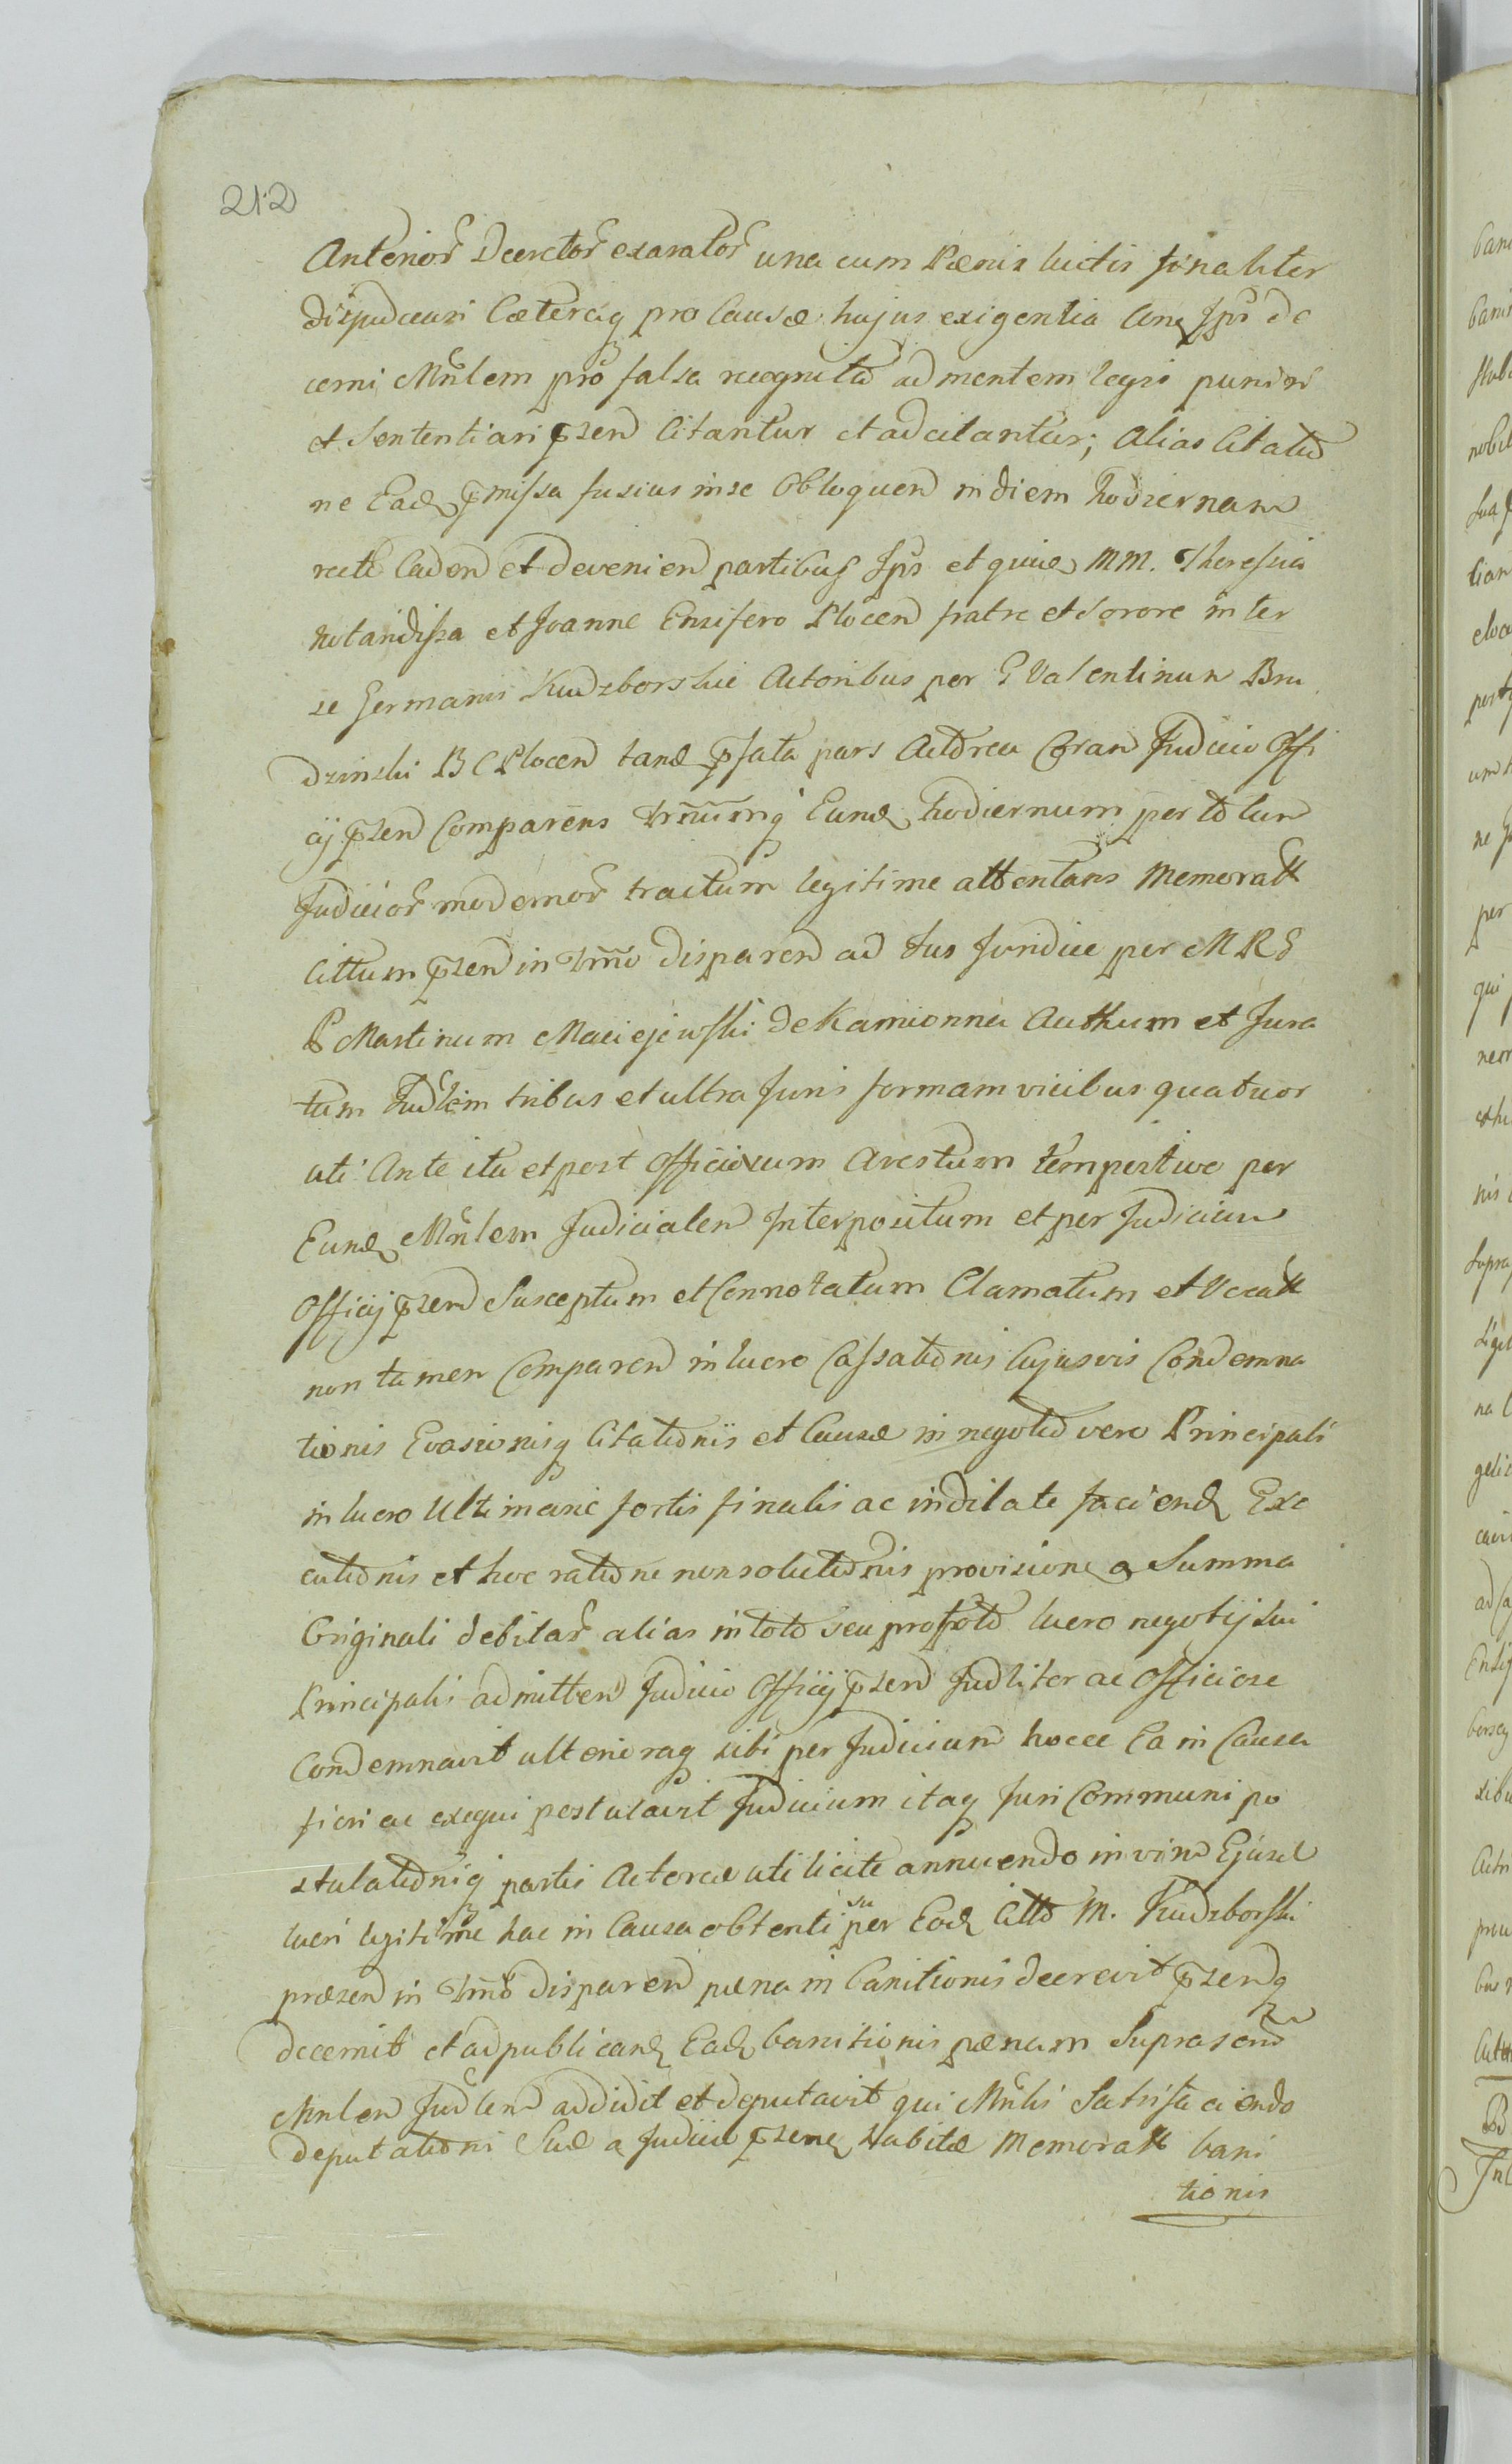 212
Anterior Decretor exarator una cum Pænis luitis finaliter
dijudicari Cæteraq pro Causæ hujus exigentia Cong Jpō de
cerni Mnlem pro falsa recognito ad mentem legis puniri
et Sententiari pzen Citantur et adcitantur; Alias Citatio
ne Ead pmissa fusius in se Obloquen in diem hodiernam
recte Caden et devenien partibus Jps et quid MM. Theressia
Notandissa et Joanne Ensifero Plocen fratre et Sorore inter
se Germanis Kudzborskie Actoribus per G Valentinum Bru
dzinski B C Plocen tand pfata pars Actorea Coram Judicio Offi
cij pzen Comparens trmumq Eund hodiernum per totum
Judicior modernor tractum legitime attentans Memoratt
Cittum pzen in trmo disparen ad Jus Juridice per M R G
G Martinum Maciejewski de Kamionna Authum et Jura
tum Judlem tribus et ultra Juris formam vicibus quatuor
uti Ante ita et post Officiosum Arestum tempestive per
Eund Mnlem Judicialem Interpositum et per Judicium
Officij pzen Susceptum et Connotatum Clamatum et Vocatt
non tamen Comparen in lucro Cassationis Cujusvis Condemna
tionis Evasionisq Citationis et Causæ in negotio vero Principali
in lucro Ultimarie sortis finalis ac indilate faciend Exe
cutionis et hoc ratione non solutionis provisione a Summa
Originali debitar alias in toto seu pro toto lucro negotij sui
Principalis admitten Judicio Officij pzen Judliter ac Officiose
Condemnavit ulterioraq sibi per Judicium hocce Ea in Causa
fieri ac exequi postulavit Judicium itaq Juri Communi po
stulationiq partis Actoreæ uti licite annuendo in vim Ejusd
lucri legitime hac in Causa obtenti su per Eod Citto M. Kudzborski
præsen in trmo disparen pœnam Banitionis decrevit pzenq
decernit et ad publicand Ead banitionis pænam Suprascrm
Mnlem Judlem addidit et deputavit qui Mnlis Satisfaciendo
deputationi Suæ a Judicio pzenq Habitæ Memoratt bani
tionis